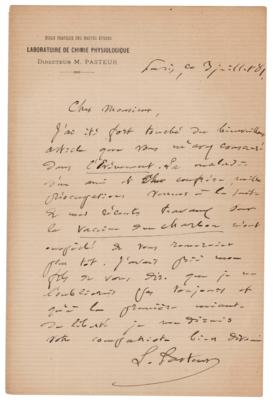 ÉCOLE PRATIQUE DES HAUTES ÉTUDES
LABORATOIRE DE CHIMIE PHYSIOLOGIQUE
DIRECTEUR M. PASTEUR
Paris, ce 3 juillet 81.
Cher Monsieur,
J'ai été fort touché du bienveillant
article que vous m'avez consacré
dans l'Evénement. La maladie
d'un ami et cher confrère, mille
préoccupations venues à la suite
de mes récents travaux sur
le vaccin du charbon m'ont
empêché de vous remercier
plus tot. J'avais prié mon
fils de vous dire que je ne
l'oubliais pas toujours et
qu'à la première minute
de liberté je me dirais
votre compatriote bien dévoué
L. Pasteur